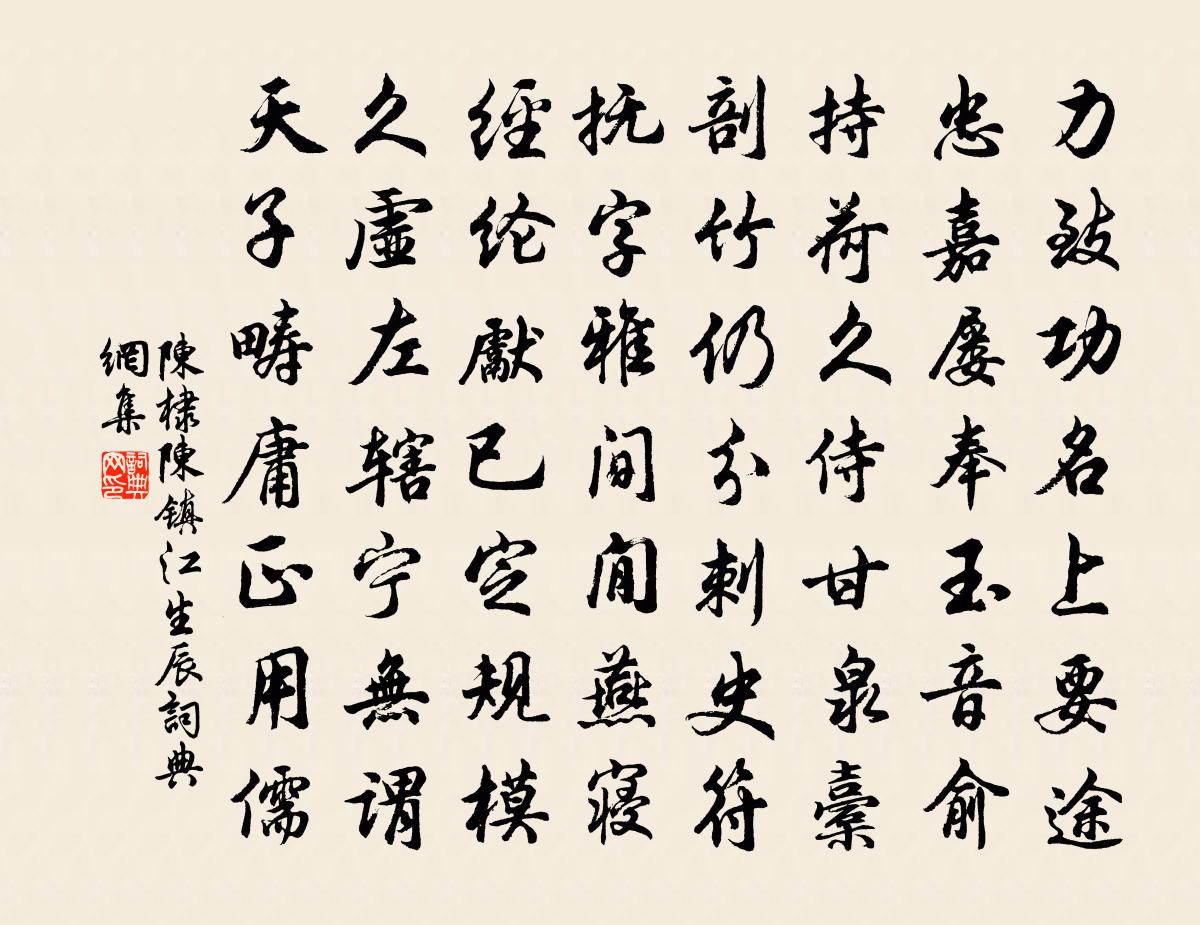 力致功名上要途
忠嘉屡奉玉音俞
持荷久侍甘泉橐
剖竹仍分刺史符
抚字雅间闲燕寝
經纶獻已定规模
久虛左辖宁無谓
天子畴庸正用儒
陳棣陳鎮江生辰詞典
網集